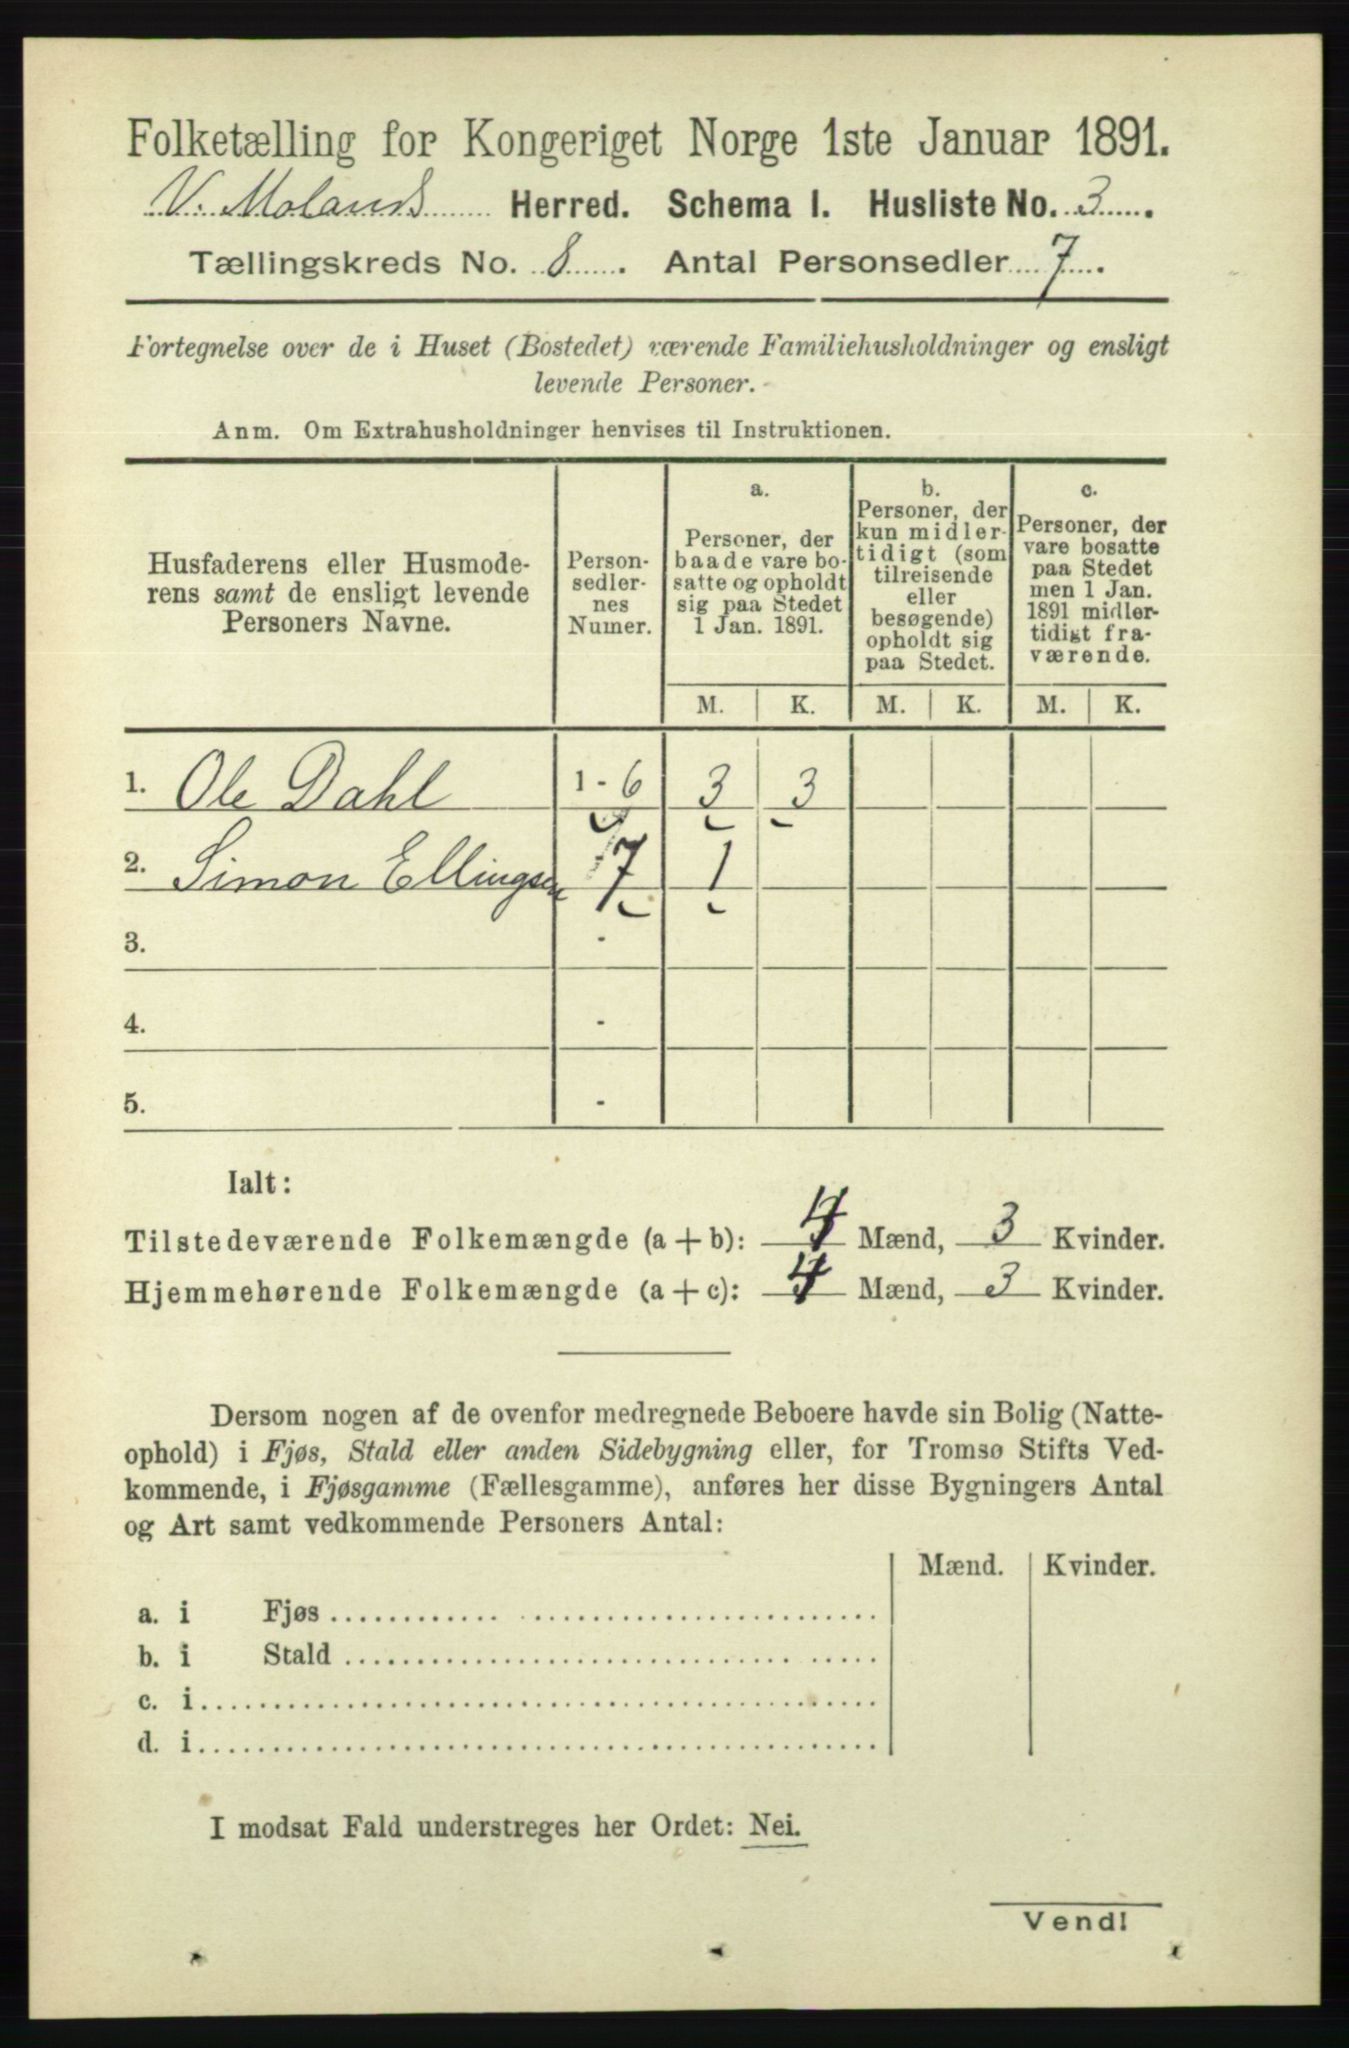 Folketælling for Kongeriget Norge 1ste Januar 1891.
V. Molands Herred. Schema I. Husliste No. 3.
Tællingskreds No. 8. Antal Personsedler 7.
Fortegnelse over de i Huset (Bostedet) værende Familiehusholdninger og ensligt
levende Personer.
Anm. Om Extrahusholdninger henvises til Instruktionen.
Husfaderens eller Husmode-
rens samt de ensligt levende
Personers Navne.
Person-
sedler-
nes
Numer.
a.
Personer, der
baade vare bo-
satte og opholdt
sig paa Stedet
1 Jan. 1891.
b.
Personer, der
kun midler-
tidigt (som
tilreisende
eller
besøgende)
opholdt sig
paa Stedet.
c.
Personer, der
vare bosatte
paa Stedet
men 1 Jan.
1891 midler-
tidigt fra-
værende.
M. K. M. K. M. K.
1. Ole Dahl 1 - 6 3 3
2. Simon Ellingsen 7 1
3. -
4. -
5. -
Ialt:
Tilstedeværende Folkemængde (a + b): 4 Mænd, 3 Kvinder.
Hjemmehørende Folkemængde (a + c): 4 Mænd, 3 Kvinder.
Dersom nogen af de ovenfor medregnede Beboere havde sin Bolig (Natte-
ophold) i Fjøs, Stald eller anden Sidebygning eller, for Tromsø Stifts Ved-
kommende, i Fjøsgamme (Fællesgamme), anføres her disse Bygningers Antal
og Art samt vedkommende Personers Antal:
Mænd. Kvinder.
a. i Fjøs
b. i Stald
c. i
d. i
I modsat Fald understreges her Ordet: Nei.
Vend!